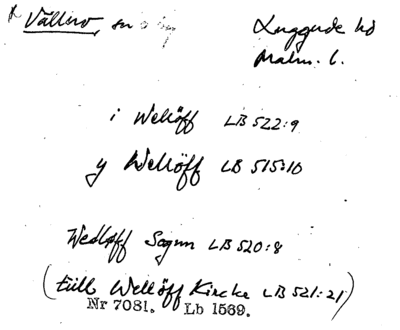 Välluv, sn o by
Luggude hd
Malm. l.
i Wellöff LB 522:9
y Wellöff LB 515:10
Wedløff Sognn LB 520:8
(till Wellöff Kircke LB 521:21)
Nr 7081. Lb 1569.